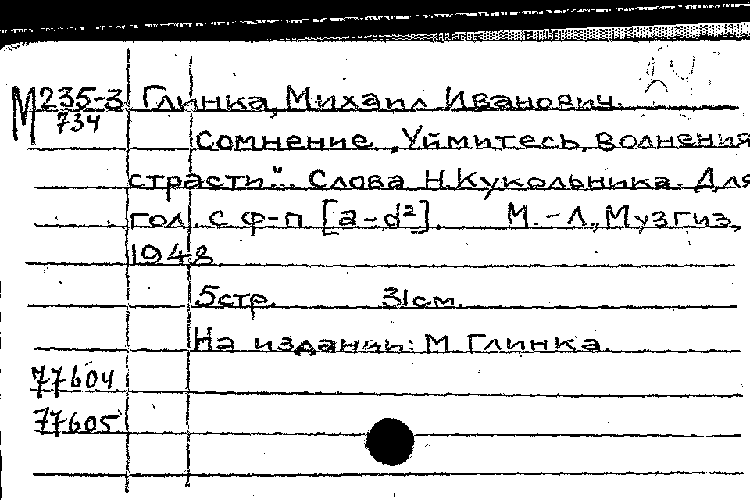 М 235-3 Глинка, Михаил Иванович.
734
Сомнение „Уймитесь, волнения
страсти“... Слова Н. Кукольника. Для
гол. с ф-п [a-d²]. М.-Л., Музгиз,
1948
5 стр. 31 см.
На издании: М. Глинка.
77604
77605